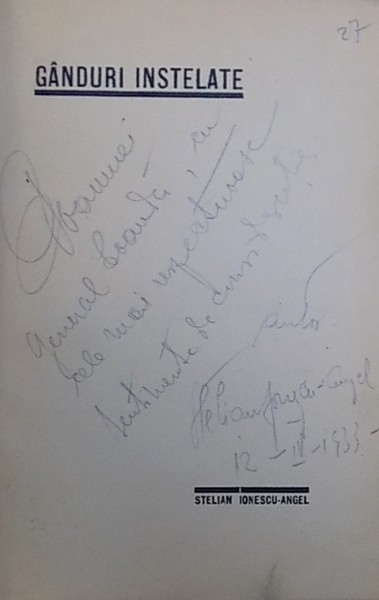 27
GÂNDURI INSTELATE
Doamnei
General Soandă, cu
cele mai respectuoase
sentimente de
autor
Stelian Ionescu-Angel
12-IV-1933-
STELIAN IONESCU-ANGEL